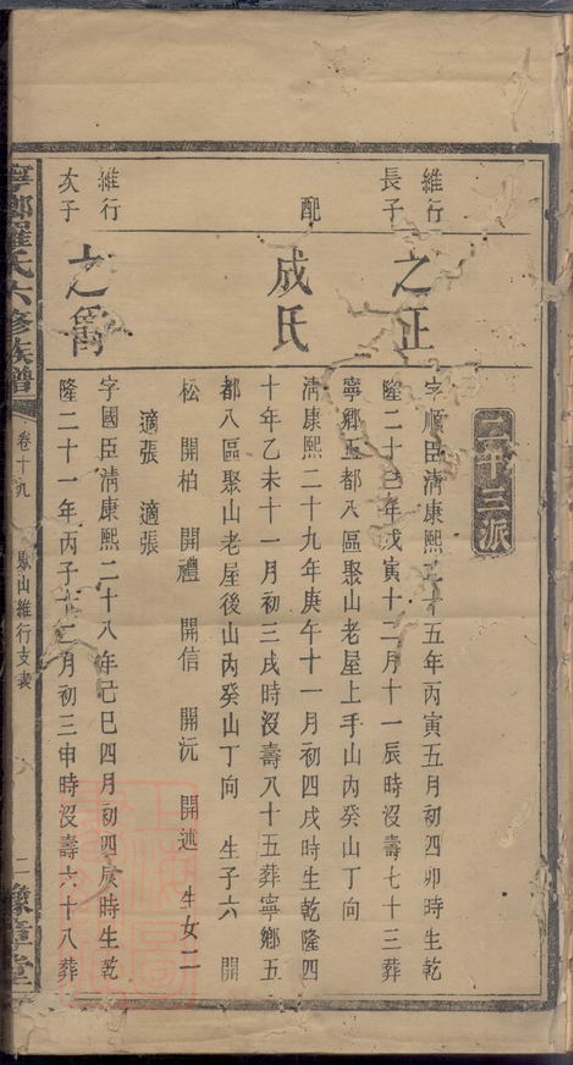 二十三派
維行長子
之正
字順臣淸康熙二十五年丙寅五月初四卯時生乾
隆二十三年戊寅十二月十一辰時沒壽七十三葬
寧鄉五都八區聚山老屋上手山內癸山丁向
配
成氏
淸康熙二十九年庚午十一月初四戌時生乾隆四
十年乙未十一月初三戌時沒壽八十五葬寧鄉五
都八區聚山老屋後山內癸山丁向 生子六 開
松 開柏 開禮 開信 開沅 開述 生女二
適張 適張
維行次子
之
字國臣淸康熙二十八年己巳四月初四辰時生乾
隆二十一年丙子十二月初三申時沒壽六十八葬
寧鄉羅氏六修族譜
卷十九
聚山維行支表
二
豫章堂